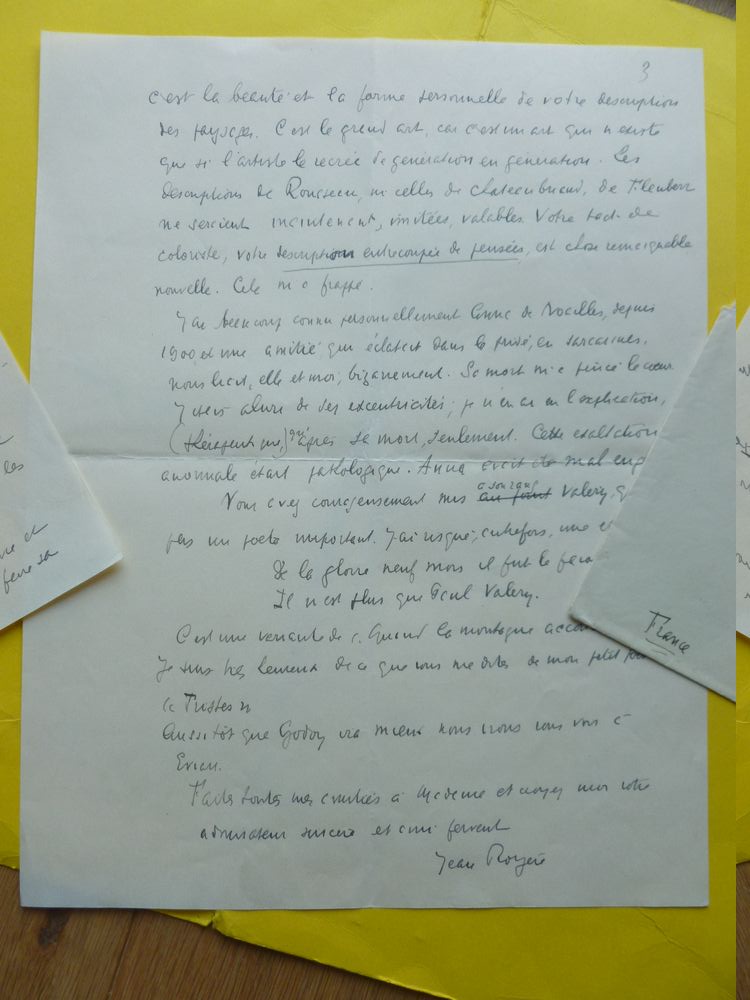 3
c'est la beauté et la forme personnelle de votre description
des paysages. C'est le grand art, car c'est un art qui n'existe
que si l'artiste le recrée de génération en génération. Les
descriptions de Rousseau, ni celles de Chateaubriand, de Flaubert
ne seraient maintenant, imitées, valables. Votre tact de
coloriste, votre description entrecoupée de pensées, est chose remarquable
nouvelle. Cela m'a frappé.
J'ai beaucoup connu personnellement Anna de Noailles, depuis
1900 et une amitié qui éclatait dans le privé, en sarcasmes,
nous liait, elle et moi, bizarrement. Sa mort m'a pincé le cœur
de ses excentricités ; je n'en ai eu l'explication,
(thérapeutique,) qu'après sa mort, seulement. Cette exaltation
anormale étant pathologique. Anna avait de mal
Vous avez courageusement mis a son rang au point Valery, q
pas un poète important. J'ai risqué, autrefois, une
De la gloire neuf mois il fut le
Il n'est plus que Paul Valery.
C'est une variante de : Quand la montagne acco
Je suis très heureux de ce que vous me dites de mon petit
Aussitôt que Godoy ira mieux nous irons vous voir à
Evian.
Faites toutes mes amitiés à Madame et croyez moi votre
admirateur sincère et ami fervent
Jean Royère
les
France